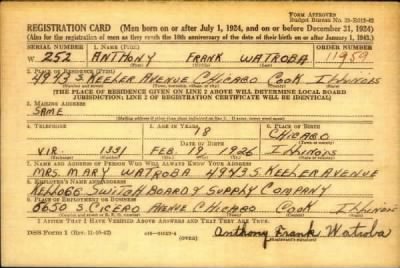 FORM APPROVED
Budget Bureau No.
REGISTRATION CARD—(Men born on or after July 1, 1924, and on or before December 31, 1924)
(Also for the registration of men as they reach the 18th anniversary of the date of their birth on or after January 1, 1943.)
SERIAL NUMBER 1. NAME (Print) ORDER NUMBER
W 252 ANTHONY FRANK WATROBA 11959
2. PLACE OF RESIDENCE (Print)
4943 S. KEELER AVENUE CHICAGO COOK ILLINOIS
[THE PLACE OF RESIDENCE GIVEN ON LINE 2 ABOVE WILL DETERMINE LOCAL BOARD
JURISDICTION; LINE 2 OF REGISTRATION CERTIFICATE WILL BE IDENTICAL]
3. MAILING ADDRESS
SAME
4. TELEPHONE 5. AGE IN YEARS 6. PLACE OF BIRTH
18 CHICAGO
DATE OF BIRTH
VIR. 1331 FEB. 19 1926 ILLINOIS
7. NAME AND ADDRESS OF PERSON WHO WILL ALWAYS KNOW YOUR ADDRESS
MRS. MARY WATROBA 4943 S. KEELER AVENUE
8. EMPLOYER'S NAME AND ADDRESS
KELLOGG SWITCHBOARD & SUPPLY COMPANY
9. PLACE OF EMPLOYMENT OR BUSINESS
6650 S. CICERO AVENUE CHICAGO COOK ILLINOIS
I AFFIRM THAT I HAVE VERIFIED ABOVE ANSWERS AND THAT THEY ARE TRUE.
DSS Form 1 (Rev. 11-16-42) (over) Anthony Frank Watroba